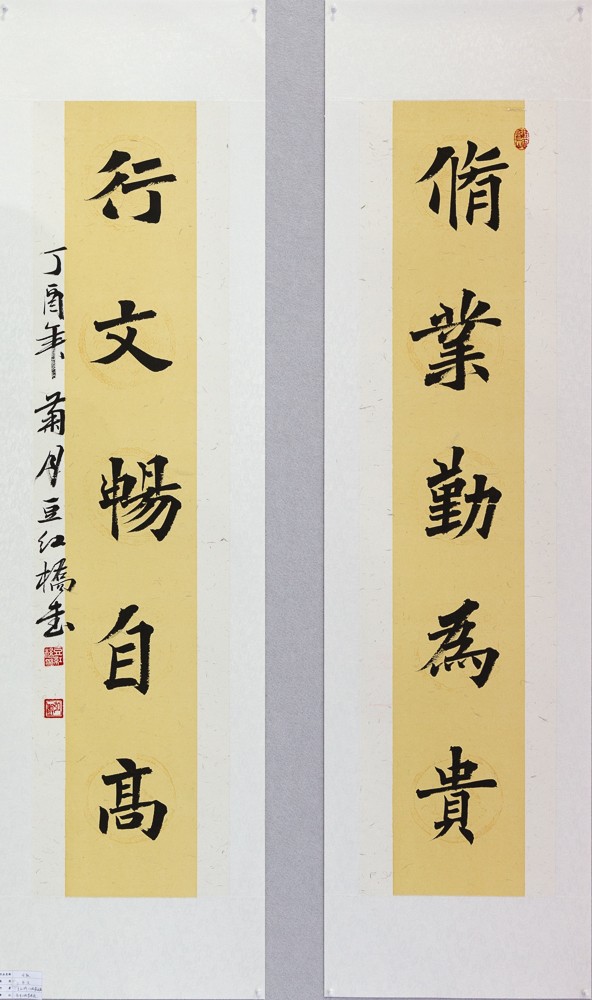 脩業勤為貴
行文暢自高
丁酉年菊月豆红橋书